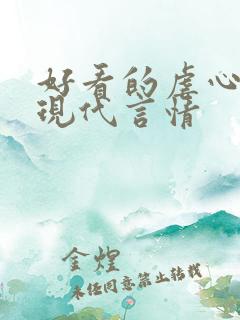 好看的虐心
現代言情
金煌
未经同意禁止转载